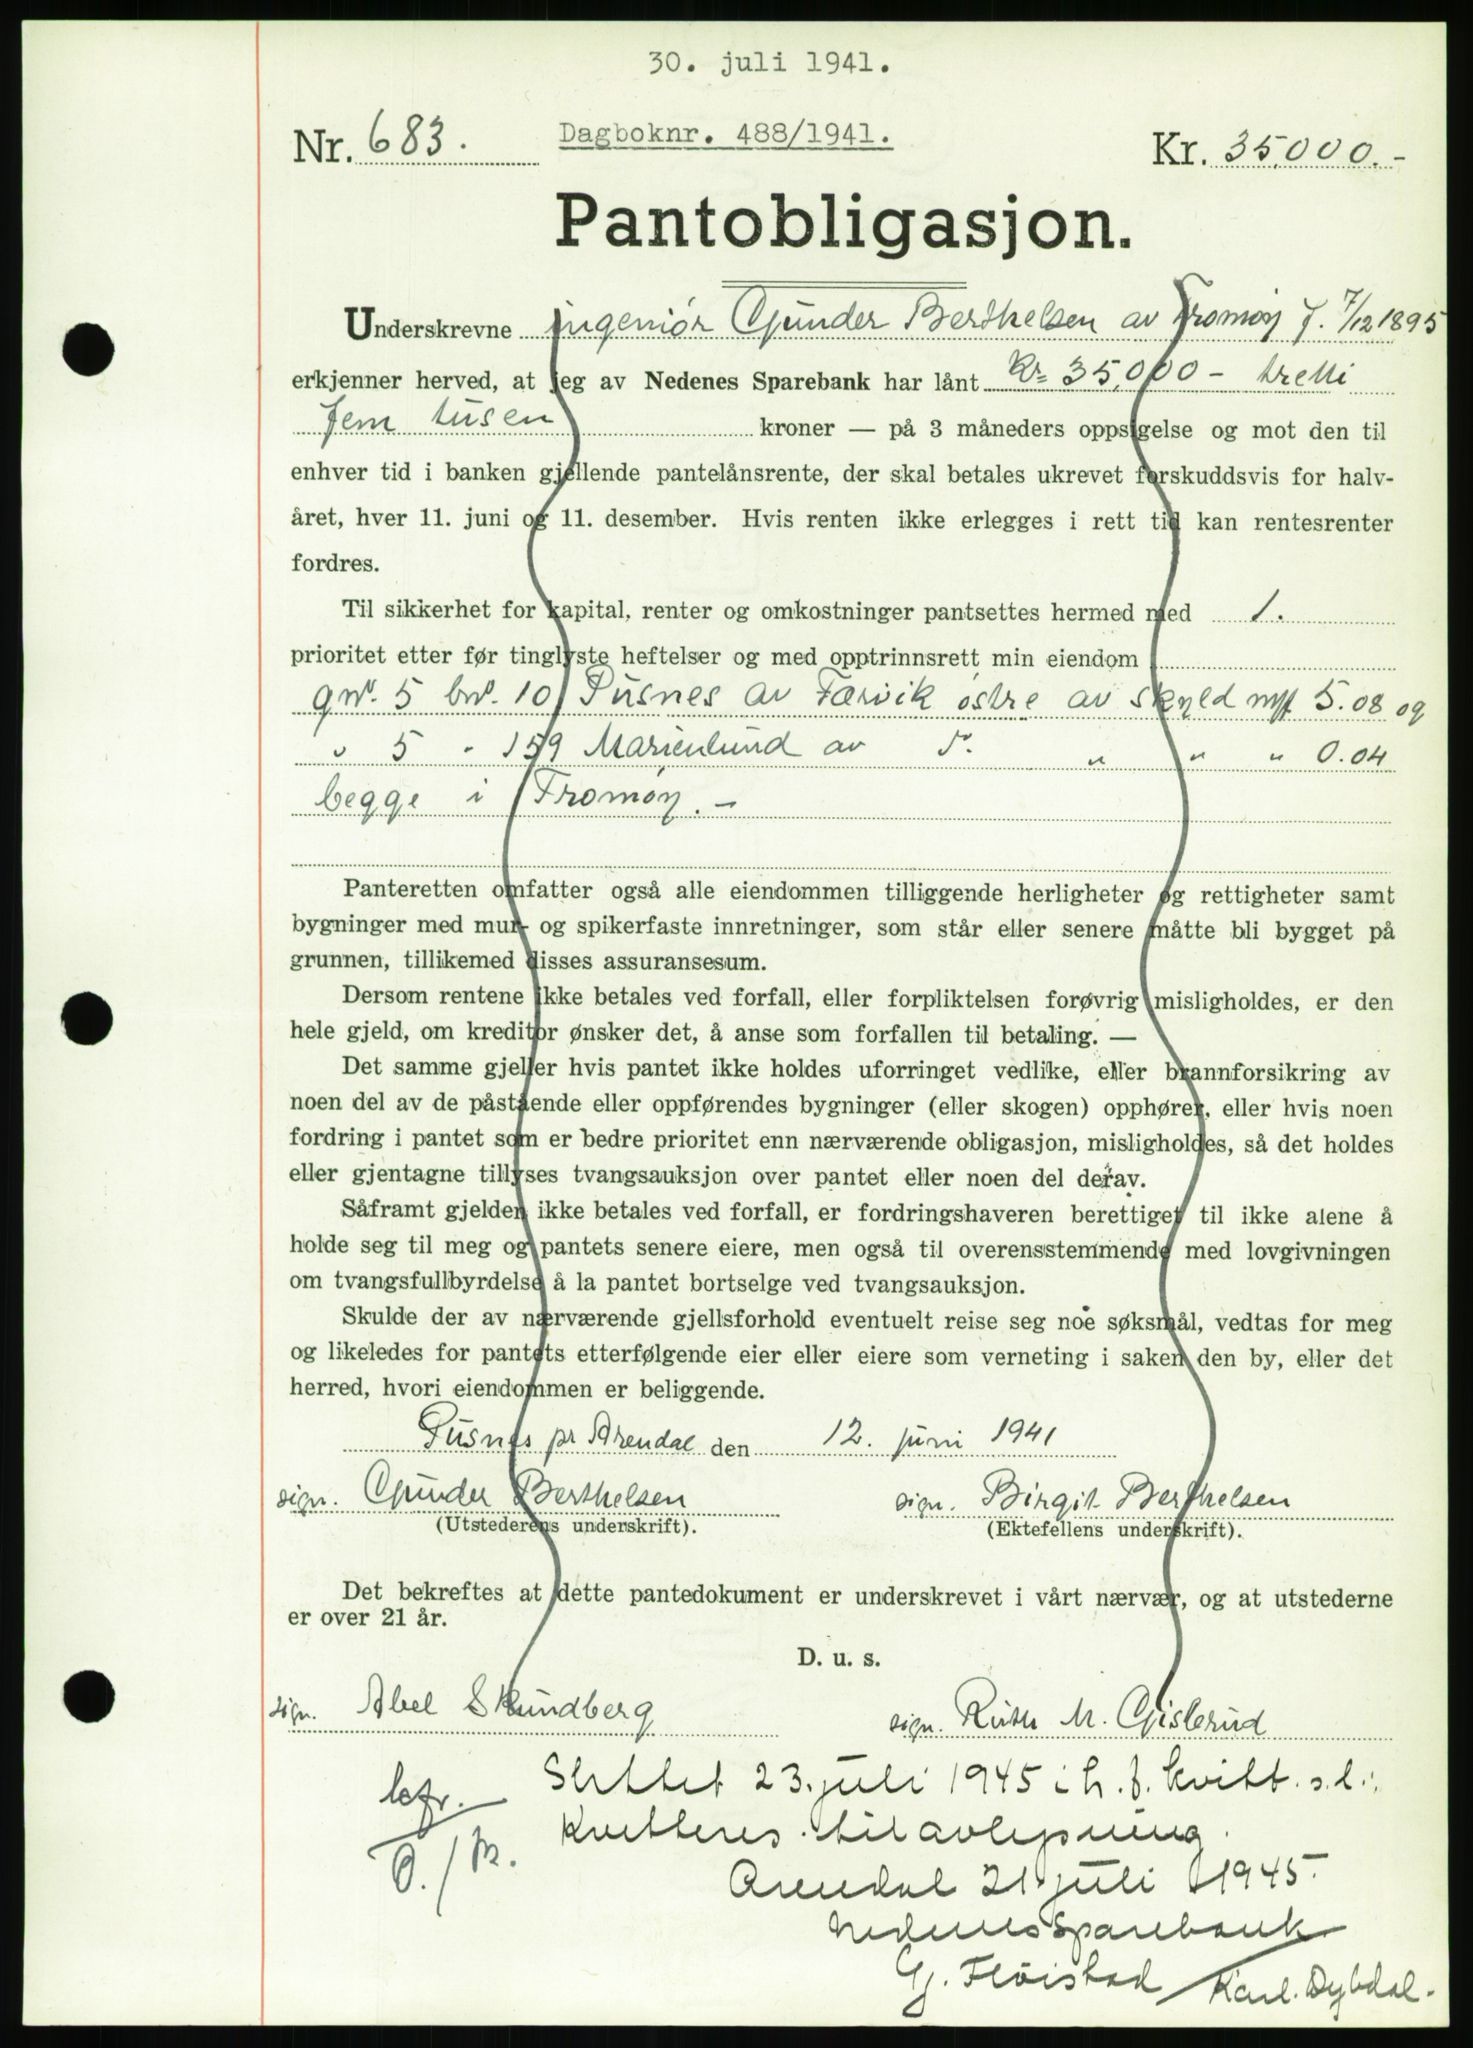 30. juli 1941.
Nr. 683. Dagboknr. 488/1941. Kr. 35.000.-
Pantobligasjon.
Underskrevne ingeniør Gunder Berthelsen av Tromøy f. 7/12 1895
erkjenner herved, at jeg av Nedenes Sparebank har lånt Kr= 35,000 – tretti
fem tusen kroner — på 3 måneders oppsigelse og mot den til
enhver tid i banken gjellende pantelånsrente, der skal betales ukrevet forskuddsvis for halv-
året, hver 11. juni og 11. desember. Hvis renten ikke erlegges i rett tid kan rentesrenter
fordres.
Til sikkerhet for kapital, renter og omkostninger pantsettes hermed med 1.
prioritet etter før tinglyste heftelser og med opptrinnsrett min eiendom
gnr. 5 bnr. 10 Pusnes av Færvik østre av skyld 5.08 og
" 5 " 159 Marienlund av " " " 0.04
begge i Tromøy. –
Panteretten omfatter også alle eiendommen tilliggende herligheter og rettigheter samt
bygninger med mur- og spikerfaste innretninger, som står eller senere måtte bli bygget på
grunnen, tillikemed disses assuransesum.
Dersom rentene ikke betales ved forfall, eller forpliktelsen forøvrig misligholdes, er den
hele gjeld, om kreditor ønsker det, å anse som forfallen til betaling. —
Det samme gjeller hvis pantet ikke holdes uforringet vedlike, eller brannforsikring av
noen del av de påstående eller oppførendes bygninger (eller skogen) opphører, eller hvis noen
fordring i pantet som er bedre prioritet enn nærværende obligasjon, misligholdes, så det holdes
eller gjentagne tillyses tvangsauksjon over pantet eller noen del derav.
Såframt gjelden ikke betales ved forfall, er fordringshaveren berettiget til ikke alene å
holde seg til meg og pantets senere eiere, men også til overensstemmende med lovgivningen
om tvangsfullbyrdelse å la pantet bortselge ved tvangsauksjon.
Skulde der av nærværende gjellsforhold eventuelt reise seg noe søksmål, vedtas for meg
og likeledes for pantets etterfølgende eier eller eiere som verneting i saken den by, eller det
herred, hvori eiendommen er beliggende.
Pusnes pr Arendal den 12. juni 1941
sign. Gunder Berthelsen sign. Birgit Berthelsen
(Utstederens underskrift). (Ektefellens underskrift).
Det bekreftes at dette pantedokument er underskrevet i vårt nærvær, og at utstederne
er over 21 år.
D. u. s.
sign. Abel Skundberg sign. Ruth M. Gislerud
Slettet 23. juli 1945 i h. f. kvitt. s.l.:
Kvitteres til avlysning.
Arendal 21 juli 1945.
Nedenes Sparebank
Gj. Fløistad / Karl. Dybdal.